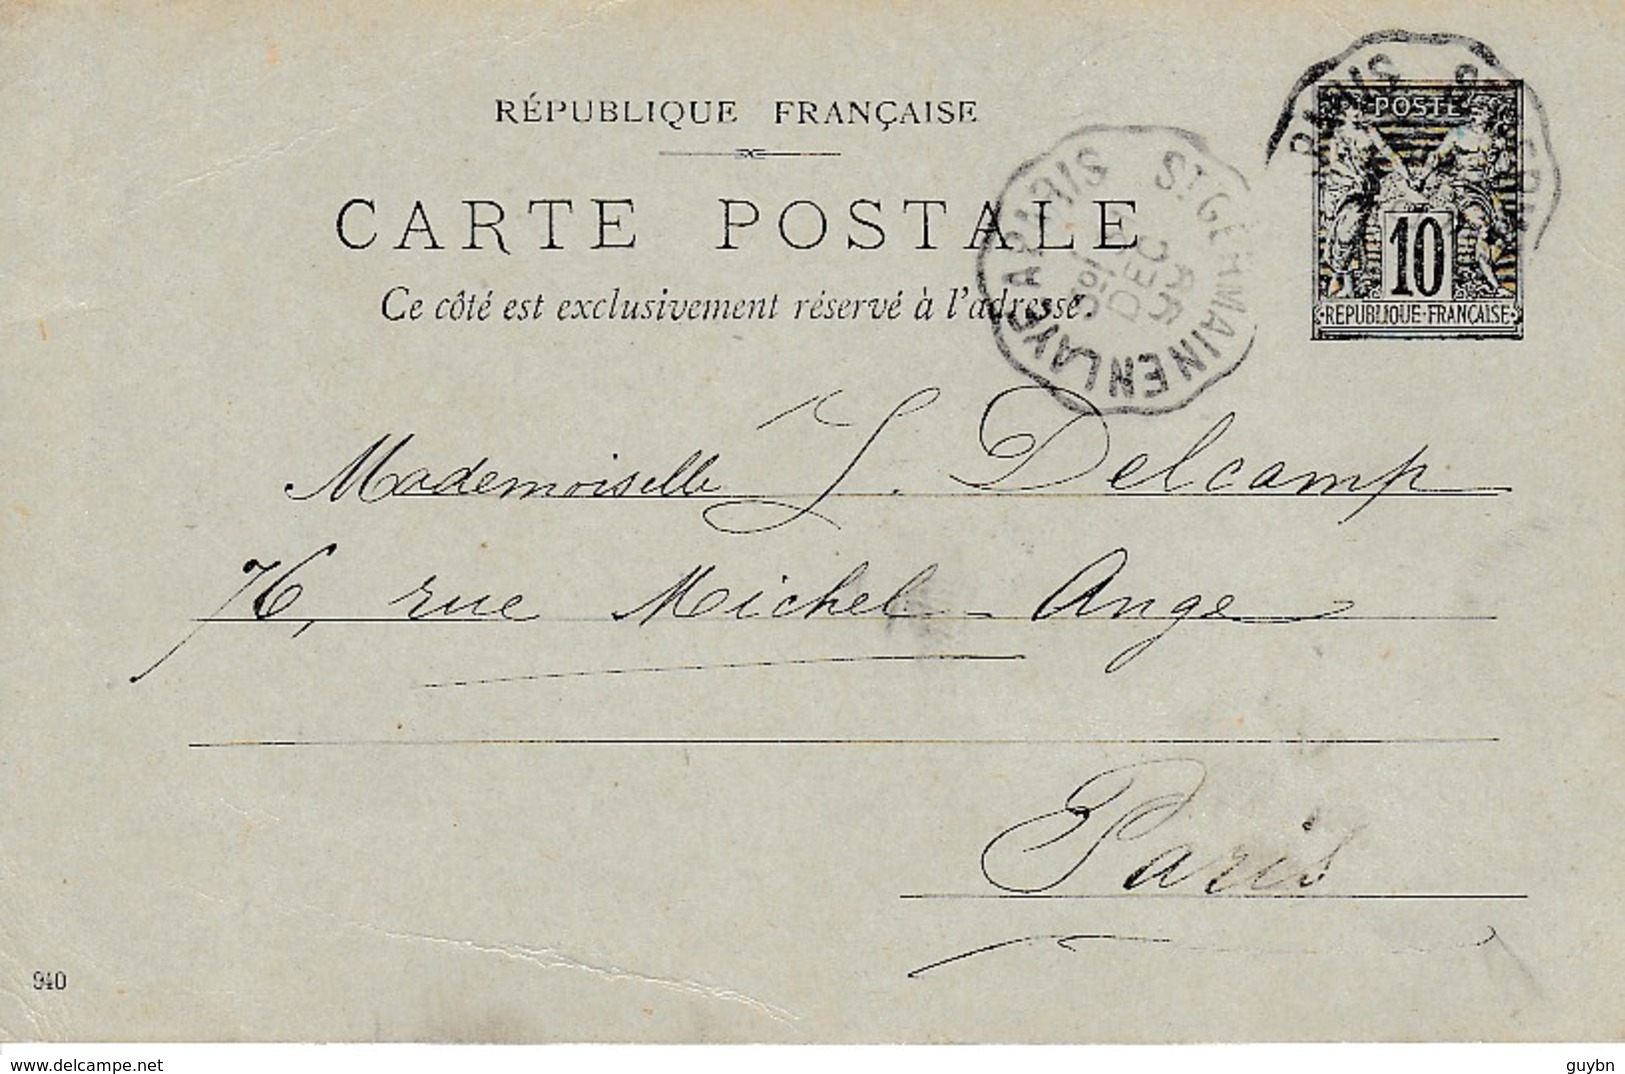 RÉPUBLIQUE FRANÇAISE
CARTE POSTALE
Ce côté est exclusivement réservé à l'adresse.
POSTE
10
REPUBLIQUE·FRANÇAISE
PARIS ST GERM
ST GERMAIN EN LAYE A PARIS
DEC
Mademoiselle J. Delcamp
76, rue Michel-Ange
Paris
940
www.delcampe.net
guybn